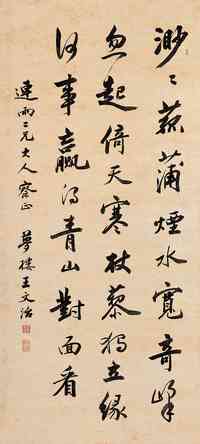 渺渺菰蒲煙水寬奇峰
忽起倚天寒杖藜獨立緣
何事贏得青山對面看
連雨二兄大人察正 夢樓王文治